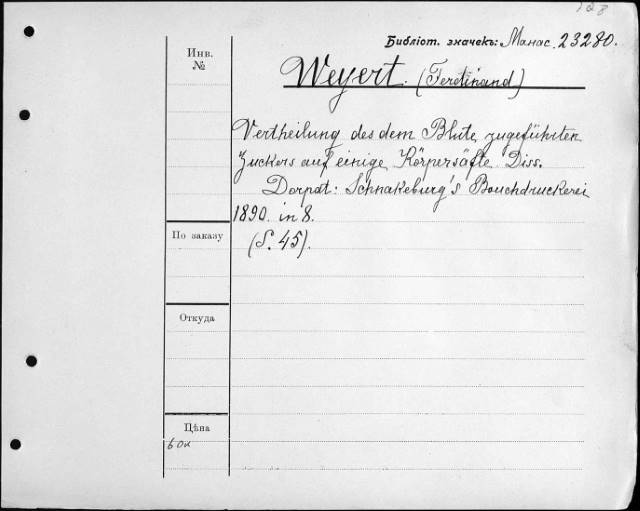 128
Библіот. значекъ: Манас. 23280.
Инв.
№
Weyert. (Ferdinand)
Vertheilung des dem Blute zugeführten
Zuckers auf einige Körpersäfte Diss.
Dorpat: Schnakeburg's Bouchdruckerei
1890. in 8.
По заказу
(S. 45).
Откуда
Цѣна
60к